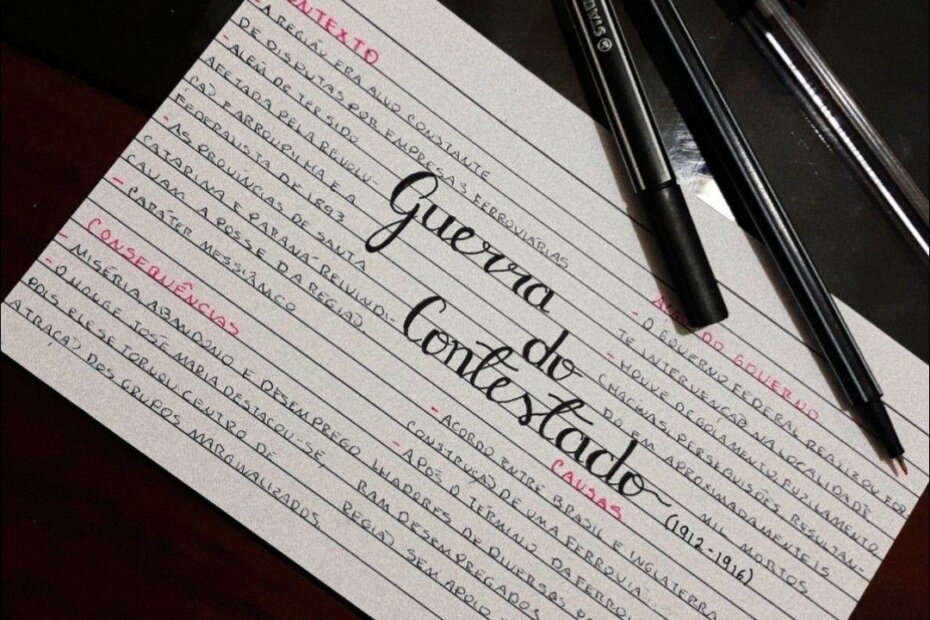 CONTEXTO
- A REGIÃO ERA ALVO CONSTANTE
DE DISPUTAS POR EMPRESAS FERROVIÁRIAS
- ALÉM DE TER SIDO
AFETADA PELA REVOLU-
ÇÃO FARROUPILHA E A
FEDERALISTA DE 1893
- AS PROVÍNCIAS DE SANTA
CATARINA E PARANÁ REIVINDI-
CAVAM A POSSE DA REGIÃO.
- CARÁTER MESSIÂNICO
Guerra
do
Contestado
(1912-1916)
CONSEQUÊNCIAS
- MISÉRIA, ABANDONO E DESEMPREGO
- O MONGE JOSÉ MARIA DESTACOU-SE,
POIS ELE SE TORNOU CENTRO DE
ATRAÇÃO DOS GRUPOS MARGINALIZADOS
DO GOVERNO
- O GOVERNO FEDERAL REALIZOU FOR-
TE INTERVENÇÃO NA LOCALIDADE
- HOUVE DEGOLAMENTO, FUZILAMENTO,
CHACINAS, PERSEGUIÇÕES RESULTAN-
DO EM APROXIMADAMENTE 15
MIL MORTOS
CAUSAS
- ACORDO ENTRE BRASIL E INGLATERRA
CONSTRUÇÃO DE UMA FERROVIA
- APÓS O TERMINO DA FERRO
LHADORES DE DIVERSAS
RAM DESEMPREGADOS
REGIÃO SEM APOIO